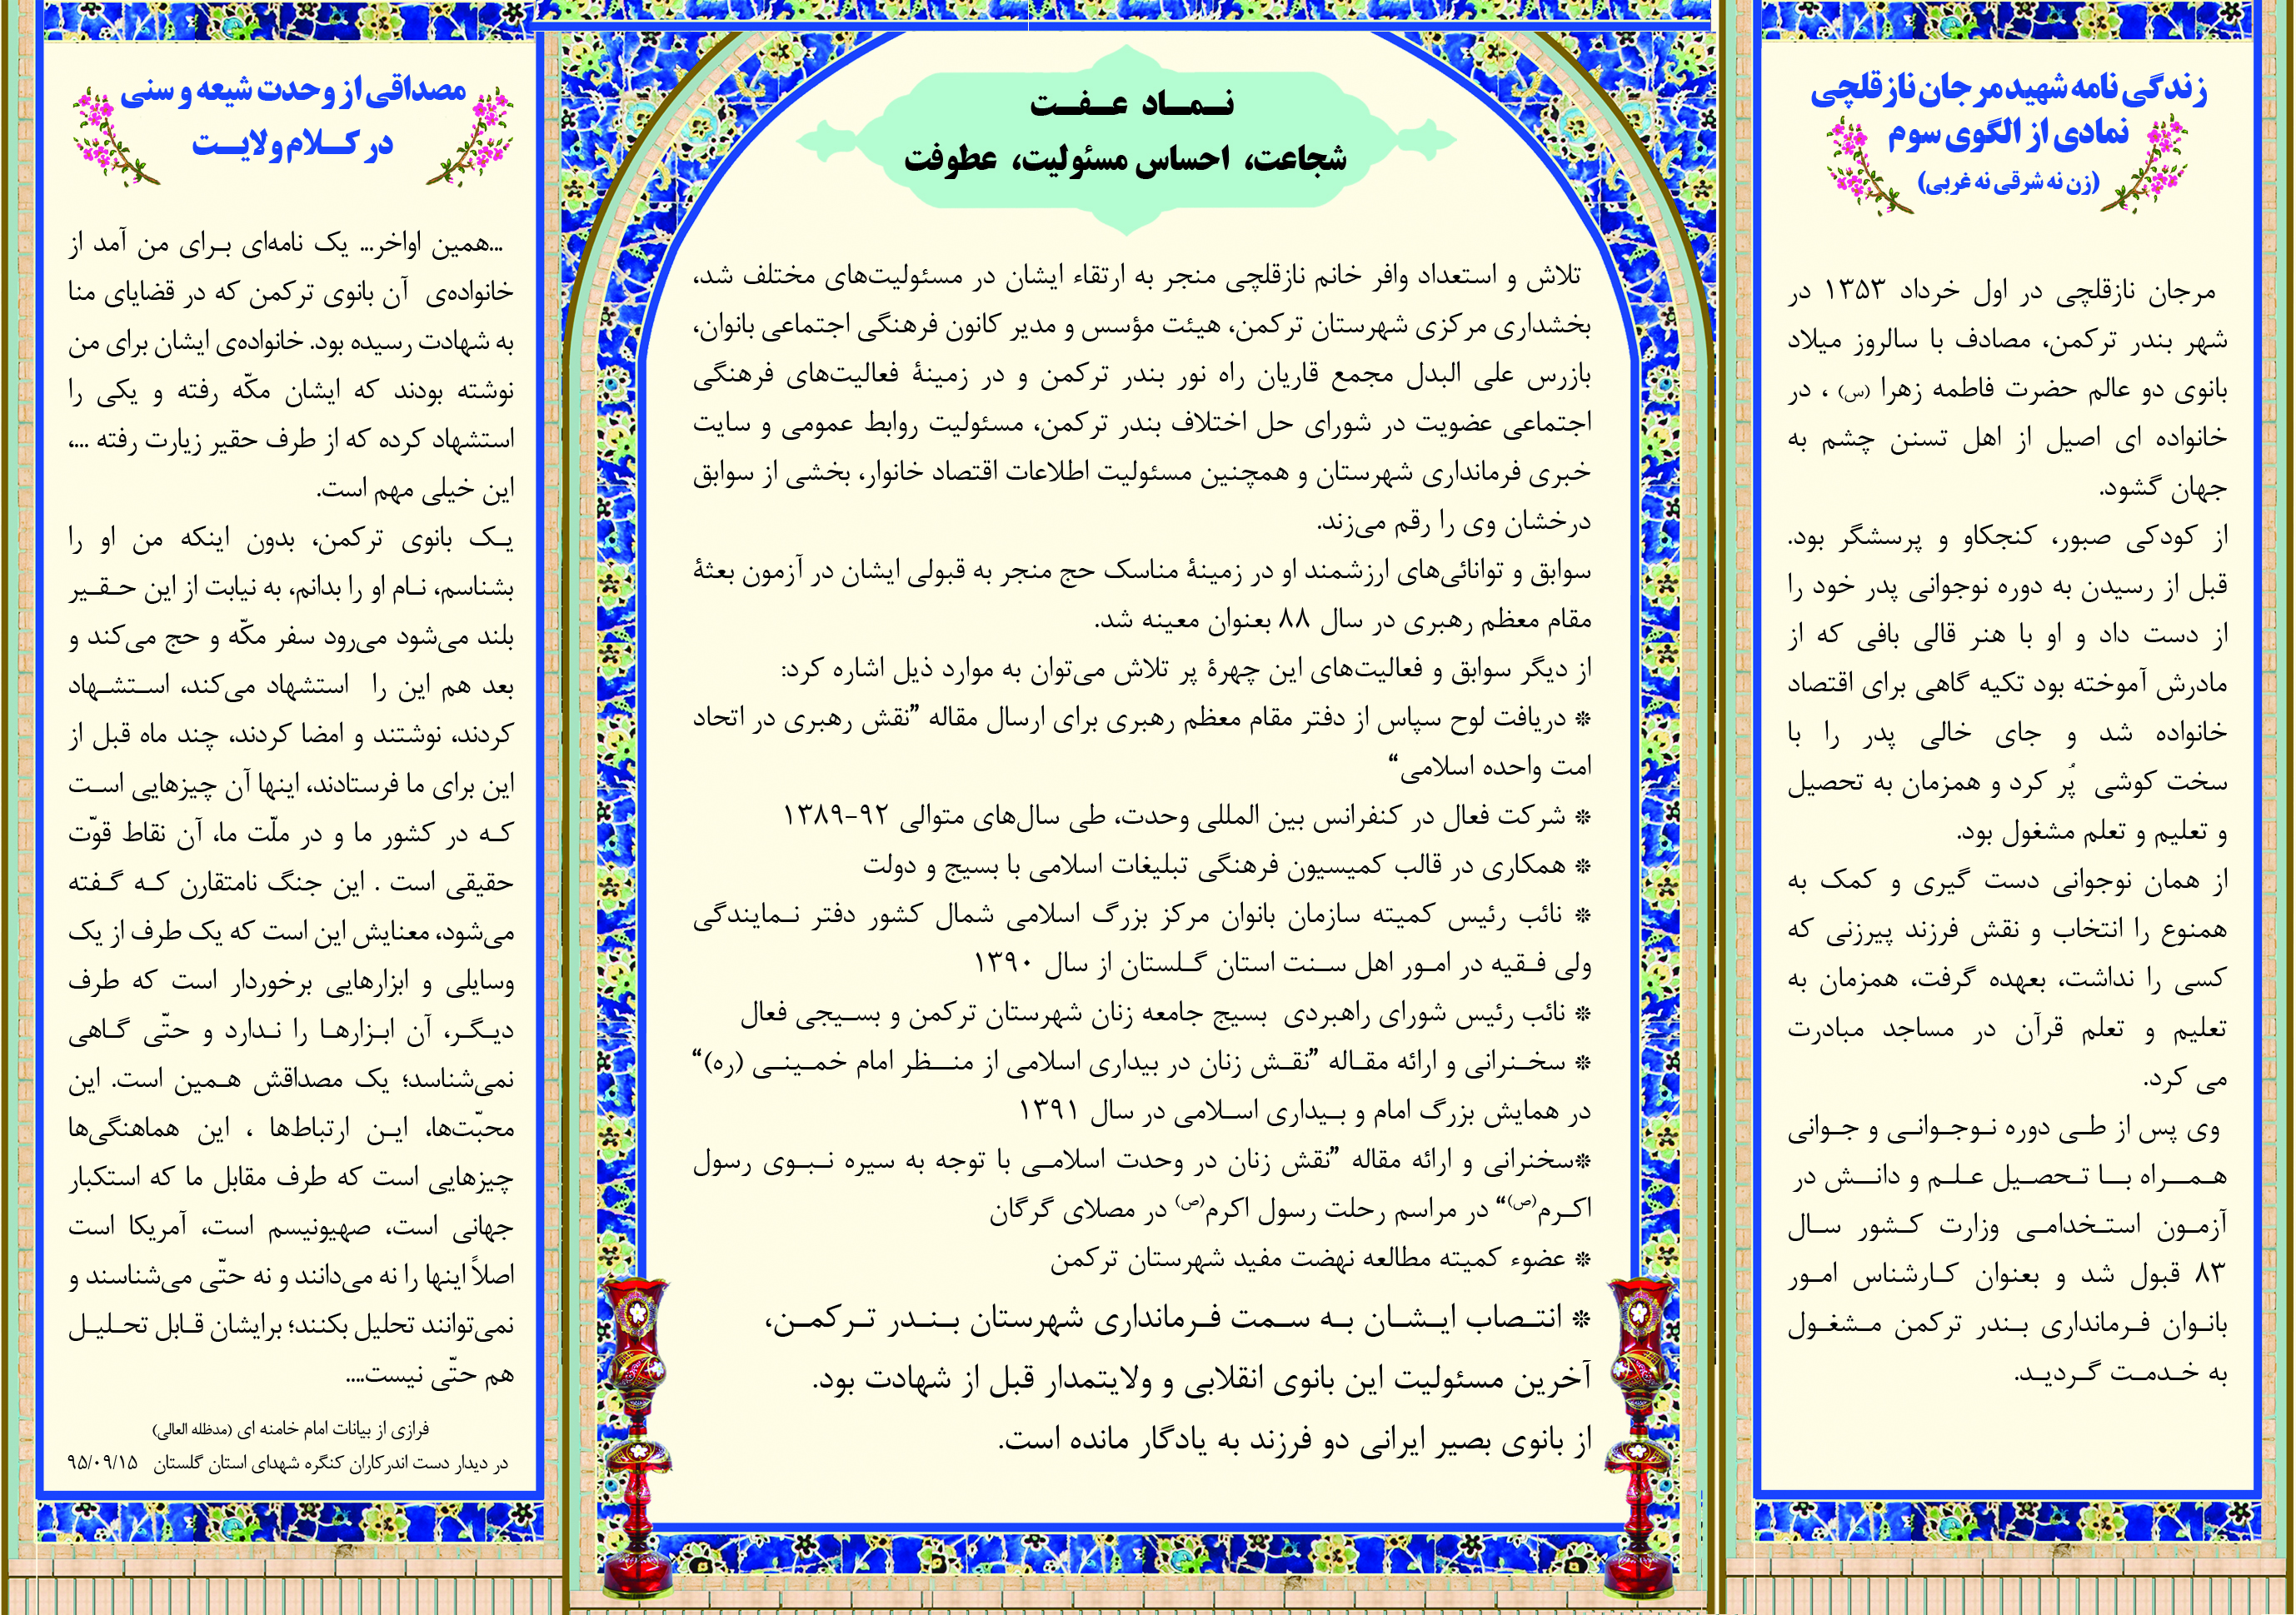 زندگی نامه شهید مرجان نازقلچی
نمادی از الگوی سوم
(زن نه شرقی نه غربی)
مرجان نازقلچی در اول خرداد ۱۳۵۳ در
شهر بندر ترکمن، مصادف با سالروز میلاد
بانوی دو عالم حضرت فاطمه زهرا (س) ، در
خانواده ای اصیل از اهل تسنن چشم به
جهان گشود.
از کودکی صبور، کنجکاو و پرسشگر بود.
قبل از رسیدن به دوره نوجوانی پدر خود را
از دست داد و او با هنر قالی بافی که از
مادرش آموخته بود تکیه گاهی برای اقتصاد
خانواده شد و جای خالی پدر را با
سخت کوشی پُر کرد و همزمان به تحصیل
و تعلیم و تعلم مشغول بود.
از همان نوجوانی دست گیری و کمک به
همنوع را انتخاب و نقش فرزند پیرزنی که
کسی را نداشت، بعهده گرفت، همزمان به
تعلیم و تعلم قرآن در مساجد مبادرت
می کرد.
وی پس از طی دوره نوجوانی و جوانی
همراه با تحصیل علم و دانش در
آزمون استخدامی وزارت کشور سال
۸۳ قبول شد و بعنوان کارشناس امور
بانوان فرمانداری بندر ترکمن مشغول
به خدمت گردید.
نماد عفت
شجاعت، احساس مسئولیت، عطوفت
تلاش و استعداد وافر خانم نازقلچی منجر به ارتقاء ایشان در مسئولیت‌های مختلف شد،
بخشداری مرکزی شهرستان ترکمن، هیئت مؤسس و مدیر کانون فرهنگی اجتماعی بانوان،
بازرس علی البدل مجمع قاریان راه نور بندر ترکمن و در زمینهٔ فعالیت‌های فرهنگی
اجتماعی عضویت در شورای حل اختلاف بندر ترکمن، مسئولیت روابط عمومی و سایت
خبری فرمانداری شهرستان و همچنین مسئولیت اطلاعات اقتصاد خانوار، بخشی از سوابق
درخشان وی را رقم می‌زند.
سوابق و توانائی‌های ارزشمند او در زمینهٔ مناسک حج منجر به قبولی ایشان در آزمون بعثهٔ
مقام معظم رهبری در سال ۸۸ بعنوان معینه شد.
از دیگر سوابق و فعالیت‌های این چهرهٔ پر تلاش می‌توان به موارد ذیل اشاره کرد:
❊ دریافت لوح سپاس از دفتر مقام معظم رهبری برای ارسال مقاله ”نقش رهبری در اتحاد
امت واحده اسلامی“
❊ شرکت فعال در کنفرانس بین المللی وحدت، طی سال‌های متوالی ۹۲-۱۳۸۹
❊ همکاری در قالب کمیسیون فرهنگی تبلیغات اسلامی با بسیج و دولت
❊ نائب رئیس کمیته سازمان بانوان مرکز بزرگ اسلامی شمال کشور دفتر نمایندگی
ولی فقیه در امور اهل سنت استان گلستان از سال ۱۳۹۰
❊ نائب رئیس شورای راهبردی بسیج جامعه زنان شهرستان ترکمن و بسیجی فعال
❊ سخنرانی و ارائه مقاله ”نقش زنان در بیداری اسلامی از منظر امام خمینی (ره)“
در همایش بزرگ امام و بیداری اسلامی در سال ۱۳۹۱
❊سخنرانی و ارائه مقاله ”نقش زنان در وحدت اسلامی با توجه به سیره نبوی رسول
اکرم(ص)“ در مراسم رحلت رسول اکرم(ص) در مصلای گرگان
❊ عضوء کمیته مطالعه نهضت مفید شهرستان ترکمن
❊ انتصاب ایشان به سمت فرمانداری شهرستان بندر ترکمن،
آخرین مسئولیت این بانوی انقلابی و ولایتمدار قبل از شهادت بود.
از بانوی بصیر ایرانی دو فرزند به یادگار مانده است.
مصداقی از وحدت شیعه و سنی
در کلام ولایت
...همین اواخر... یک نامه‌ای برای من آمد از
خانواده‌ی آن بانوی ترکمن که در قضایای منا
به شهادت رسیده بود. خانواده‌ی ایشان برای من
نوشته بودند که ایشان مکّه رفته و یکی را
استشهاد کرده که از طرف حقیر زیارت رفته ...،
این خیلی مهم است.
یک بانوی ترکمن، بدون اینکه من او را
بشناسم، نام او را بدانم، به نیابت از این حقیر
بلند می‌شود می‌رود سفر مکّه و حج می‌کند و
بعد هم این را استشهاد می‌کند، استشهاد
کردند، نوشتند و امضا کردند، چند ماه قبل از
این برای ما فرستادند، اینها آن چیزهایی است
که در کشور ما و در ملّت ما، آن نقاط قوّت
حقیقی است . این جنگ نامتقارن که گفته
می‌شود، معنایش این است که یک طرف از یک
وسایلی و ابزارهایی برخوردار است که طرف
دیگر، آن ابزارها را ندارد و حتّی گاهی
نمی‌شناسد؛ یک مصداقش همین است. این
محبّت‌ها، این ارتباط‌ها ، این هماهنگی‌ها
چیزهایی است که طرف مقابل ما که استکبار
جهانی است، صهیونیسم است، آمریکا است
اصلاً اینها را نه می‌دانند و نه حتّی می‌شناسند و
نمی‌توانند تحلیل بکنند؛ برایشان قابل تحلیل
هم حتّی نیست....
فرازی از بیانات امام خامنه ای (مدظله العالی)
در دیدار دست اندرکاران کنگره شهدای استان گلستان ۹۵/۰۹/۱۵